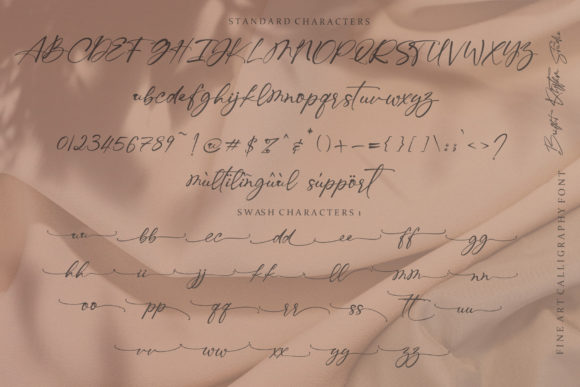 STANDARD CHARACTERS
ABCDEFGHIJKLMNOPQRSTUVWXYZ
abcdefghijklmnopqrstuvwxyz
0123456789~!@#$%^&*()+-={}[]\:;`<>?
mùltilĩngûàl súppört
SWASH CHARACTERS 1
aa bb cc dd ee ff gg
hh ii jj kk ll mm nn
oo pp qq rr ss tt uu
vv ww xx yy zz
Studio
FINE ART CALLIGRAPHY FONT